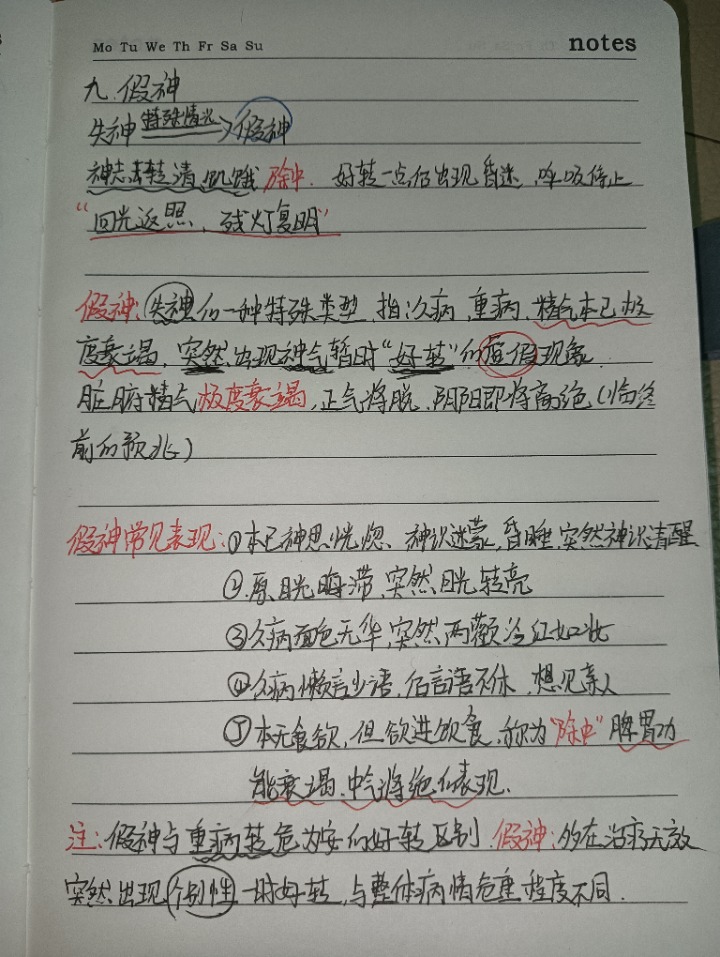 Mo Tu We Th Fr Sa Su
notes
九.假神
失神 特殊情况 假神
神志转清,饥饿 除中. 好转一点后出现昏迷,呼吸停止
“回光返照,残灯复明”
假神:失神的一种特殊类型,指久病,重病,精气本已极
度衰竭,突然出现神气暂时“好转”的虚假现象
脏腑精气极度衰竭,正气将脱,阴阳即将离绝(临终
前的预兆)
假神常见表现:①本已神思恍惚、神识迷蒙,昏睡,突然神识清醒
②.原目光晦滞,突然目光转亮
③久病面色无华,突然两颧泛红如妆
④久病懒言少语,但言语不休,想见亲人
⑤本无食欲,但欲进饮食,称为“除中”脾胃功
能衰竭,中气将绝的表现.
注:假神与重病转危为安的好转区别.假神:多在治疗无效
突然出现个别性一时好转,与整体病情危重程度不同.